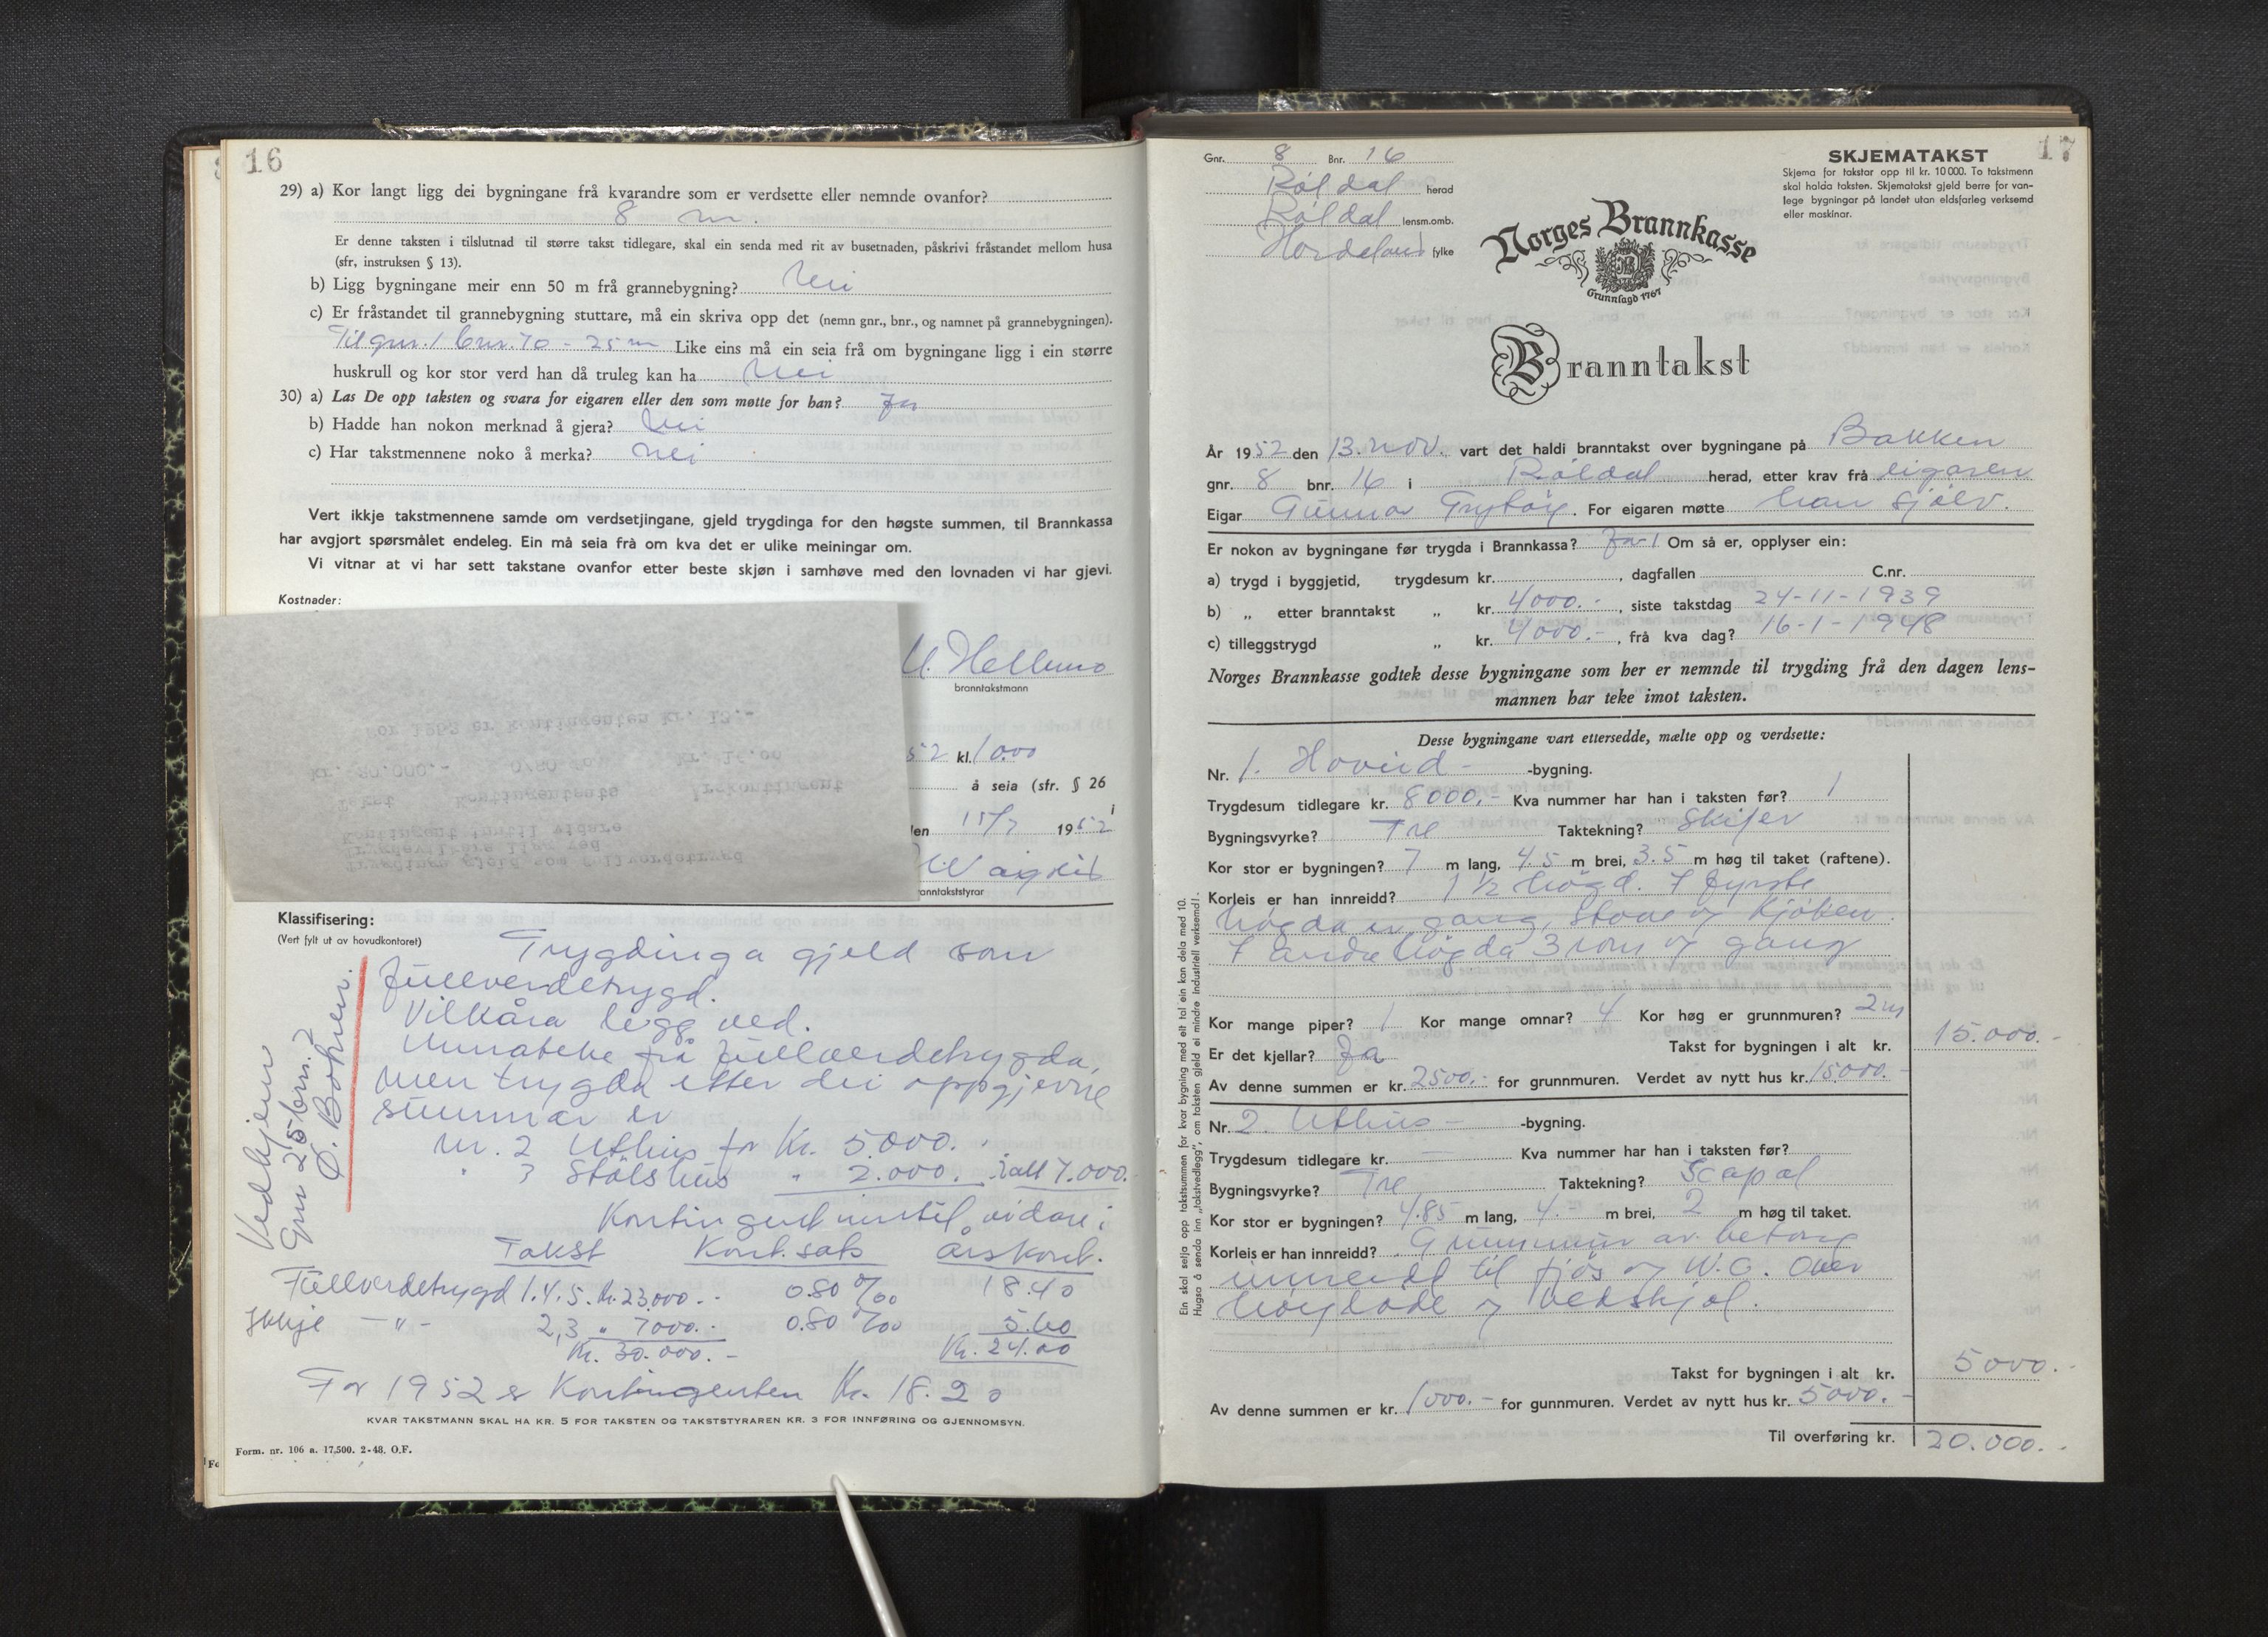 16
29) a) Kor langt ligg dei bygningane frå kvarandre som er verdsette eller nemnde ovanfor?
8 m.
Er denne taksten i tilslutnad til større takst tidlegare, skal ein senda med rit av busetnaden, påskrivi fråstandet mellom husa
(sfr. instruksen § 13).
b) Ligg bygningane meir enn 50 m frå grannebygning? Nei
c) Er fråstandet til grannebygning stuttare, må ein skriva opp det (nemn gnr., bnr., og namnet på grannebygningen).
Til gnr. 1 bnr. 70 - 25 m Like eins må ein seia frå om bygningane ligg i ein større
huskrull og kor stor verd han då truleg kan ha Nei
30) a) Las De opp taksten og svara for eigaren eller den som møtte for han? Ja
b) Hadde han nokon merknad å gjera? Nei
c) Har takstmennene noko å merka? Nei
Vert ikkje takstmennene samde om verdsetjingane, gjeld trygdinga for den høgste summen, til Brannkassa
har avgjort spørsmålet endeleg. Ein må seia frå om kva det er ulike meiningar om.
Vi vitnar at vi har sett takstane ovanfor etter beste skjøn i samhøve med den lovnaden vi har gjevi.
Kostnader:
branntakstmann
52 kl. 1000
å seia (sfr. § 26
i
len 15/7 1952
ranntakststyrar
Trygdinga gjeld som fullverdetrygd
Trygdevilkåra ligg ved
Kontingent inntil vidare
Takst Kontingentsats Årskontingent
kr. 30.000.- 0/80 o/oo kr. 24.00
For 1952 er kontingenten kr. 12.-
Klassifisering:
(Vert fylt ut av hovudkontoret)
Trygdinga gjeld som
fullverdetrygd.
Vilkåra ligg ved.
Unnateke frå fullverdetrygda,
men trygda etter dei oppgjevne
summar er
Nr. 2 Uthus for Kr. 5000.
" 3 Stølshus " 2.000. ialt 7.000.
Kontingent inntil vidare:
Takst Kont. sats årskont.
Fullverdetrygd 1.4.5. kr. 23.000.- 0.80 ‰ 18.40
Ikkje -"- 2,3 " 7000.- 0.80 ‰ 5.60
Kr. 30.000.- Kr. 24.00
For 1952 er Kontingenten Kr. 18.20
KVAR TAKSTMANN SKAL HA KR. 5 FOR TAKSTEN OG TAKSTSTYRAREN KR. 3 FOR INNFØRING OG GJENNOMSYN.
Form. nr. 106 a. 17.500. 2-48. O.F.
17
Gnr. 8 Bnr. 16
Røldal herad
Røldal lensm.omb.
Hordaland fylke
SKJEMATAKST
Skjema for takstar opp til kr. 10 000. To takstmenn
skal halda taksten. Skjematakst gjeld berre for van-
lege bygningar på landet utan eldsfarleg verksemd
eller maskinar.
Norges Brannkasse
Grunnlagd 1767
Branntakst
År 1952 den 13. nov. vart det haldi branntakst over bygningane på Bakken
gnr. 8 bnr. 16 i Røldal herad, etter krav frå eigaren
Eigar Gunnar . For eigaren møtte han sjølv.
Er nokon av bygningane før trygda i Brannkassa? Ja 1 Om så er, opplyser ein:
a) trygd i byggjetid, trygdesum kr. , dagfallen C.nr.
b) „ etter branntakst „ kr. 4000.-, siste takstdag 24-11-1939
c) tilleggstrygd „ kr. 4000.-, frå kva dag? 16-1-1948
Norges Brannkasse godtek desse bygningane som her er nemnde til trygding frå den dagen lens-
mannen har teke imot taksten.
Desse bygningane vart ettersedde, mælte opp og verdsette:
Nr. 1. Hovud- -bygning.
Trygdesum tidlegare kr. 8000.- Kva nummer har han i taksten før? 1
Bygningsvyrke? Tre Taktekning? Skifer
Kor stor er bygningen? 7 m lang, 4.5 m brei, 3.5 m høg til taket (raftene).
Korleis er han innreidd? 1 ½ høgd. I fyrste
høgda er gang, stove og kjøken.
I andre høgda 3 rom og gang
Kor mange piper? 1 Kor mange omnar? 4 Kor høg er grunnmuren? 2 m
Er det kjellar? Ja Takst for bygningen i alt kr. 15.000.-
Av denne summen er kr. 2500.- for grunnmuren. Verdet av nytt hus kr. 15000.-
Nr. 2. Uthus- -bygning.
Trygdesum tidlegare kr. — Kva nummer har han i taksten før?
Bygningsvyrke? Tre Taktekning? Scapal
Kor stor er bygningen? 4.85 m lang, 4.- m brei, 2 m høg til taket.
Korleis er han innreidd? Grunnmur av betong
innreidd til fjøs og W.C. Over
høyløde og vedskjol.
Takst for bygningen i alt kr. 5000.-
Av denne summen er kr. 1000.- for gunnmuren. Verdet av nytt hus kr. 5000.-
Til overføring kr. 20.000.-
Ein skal setja opp takstsummen for kvar bygning med eit tal ein kan dela med 10.
Hugsa å senda inn „takstvedlegg", om taksten gjeld ei mindre industriell verksemd!